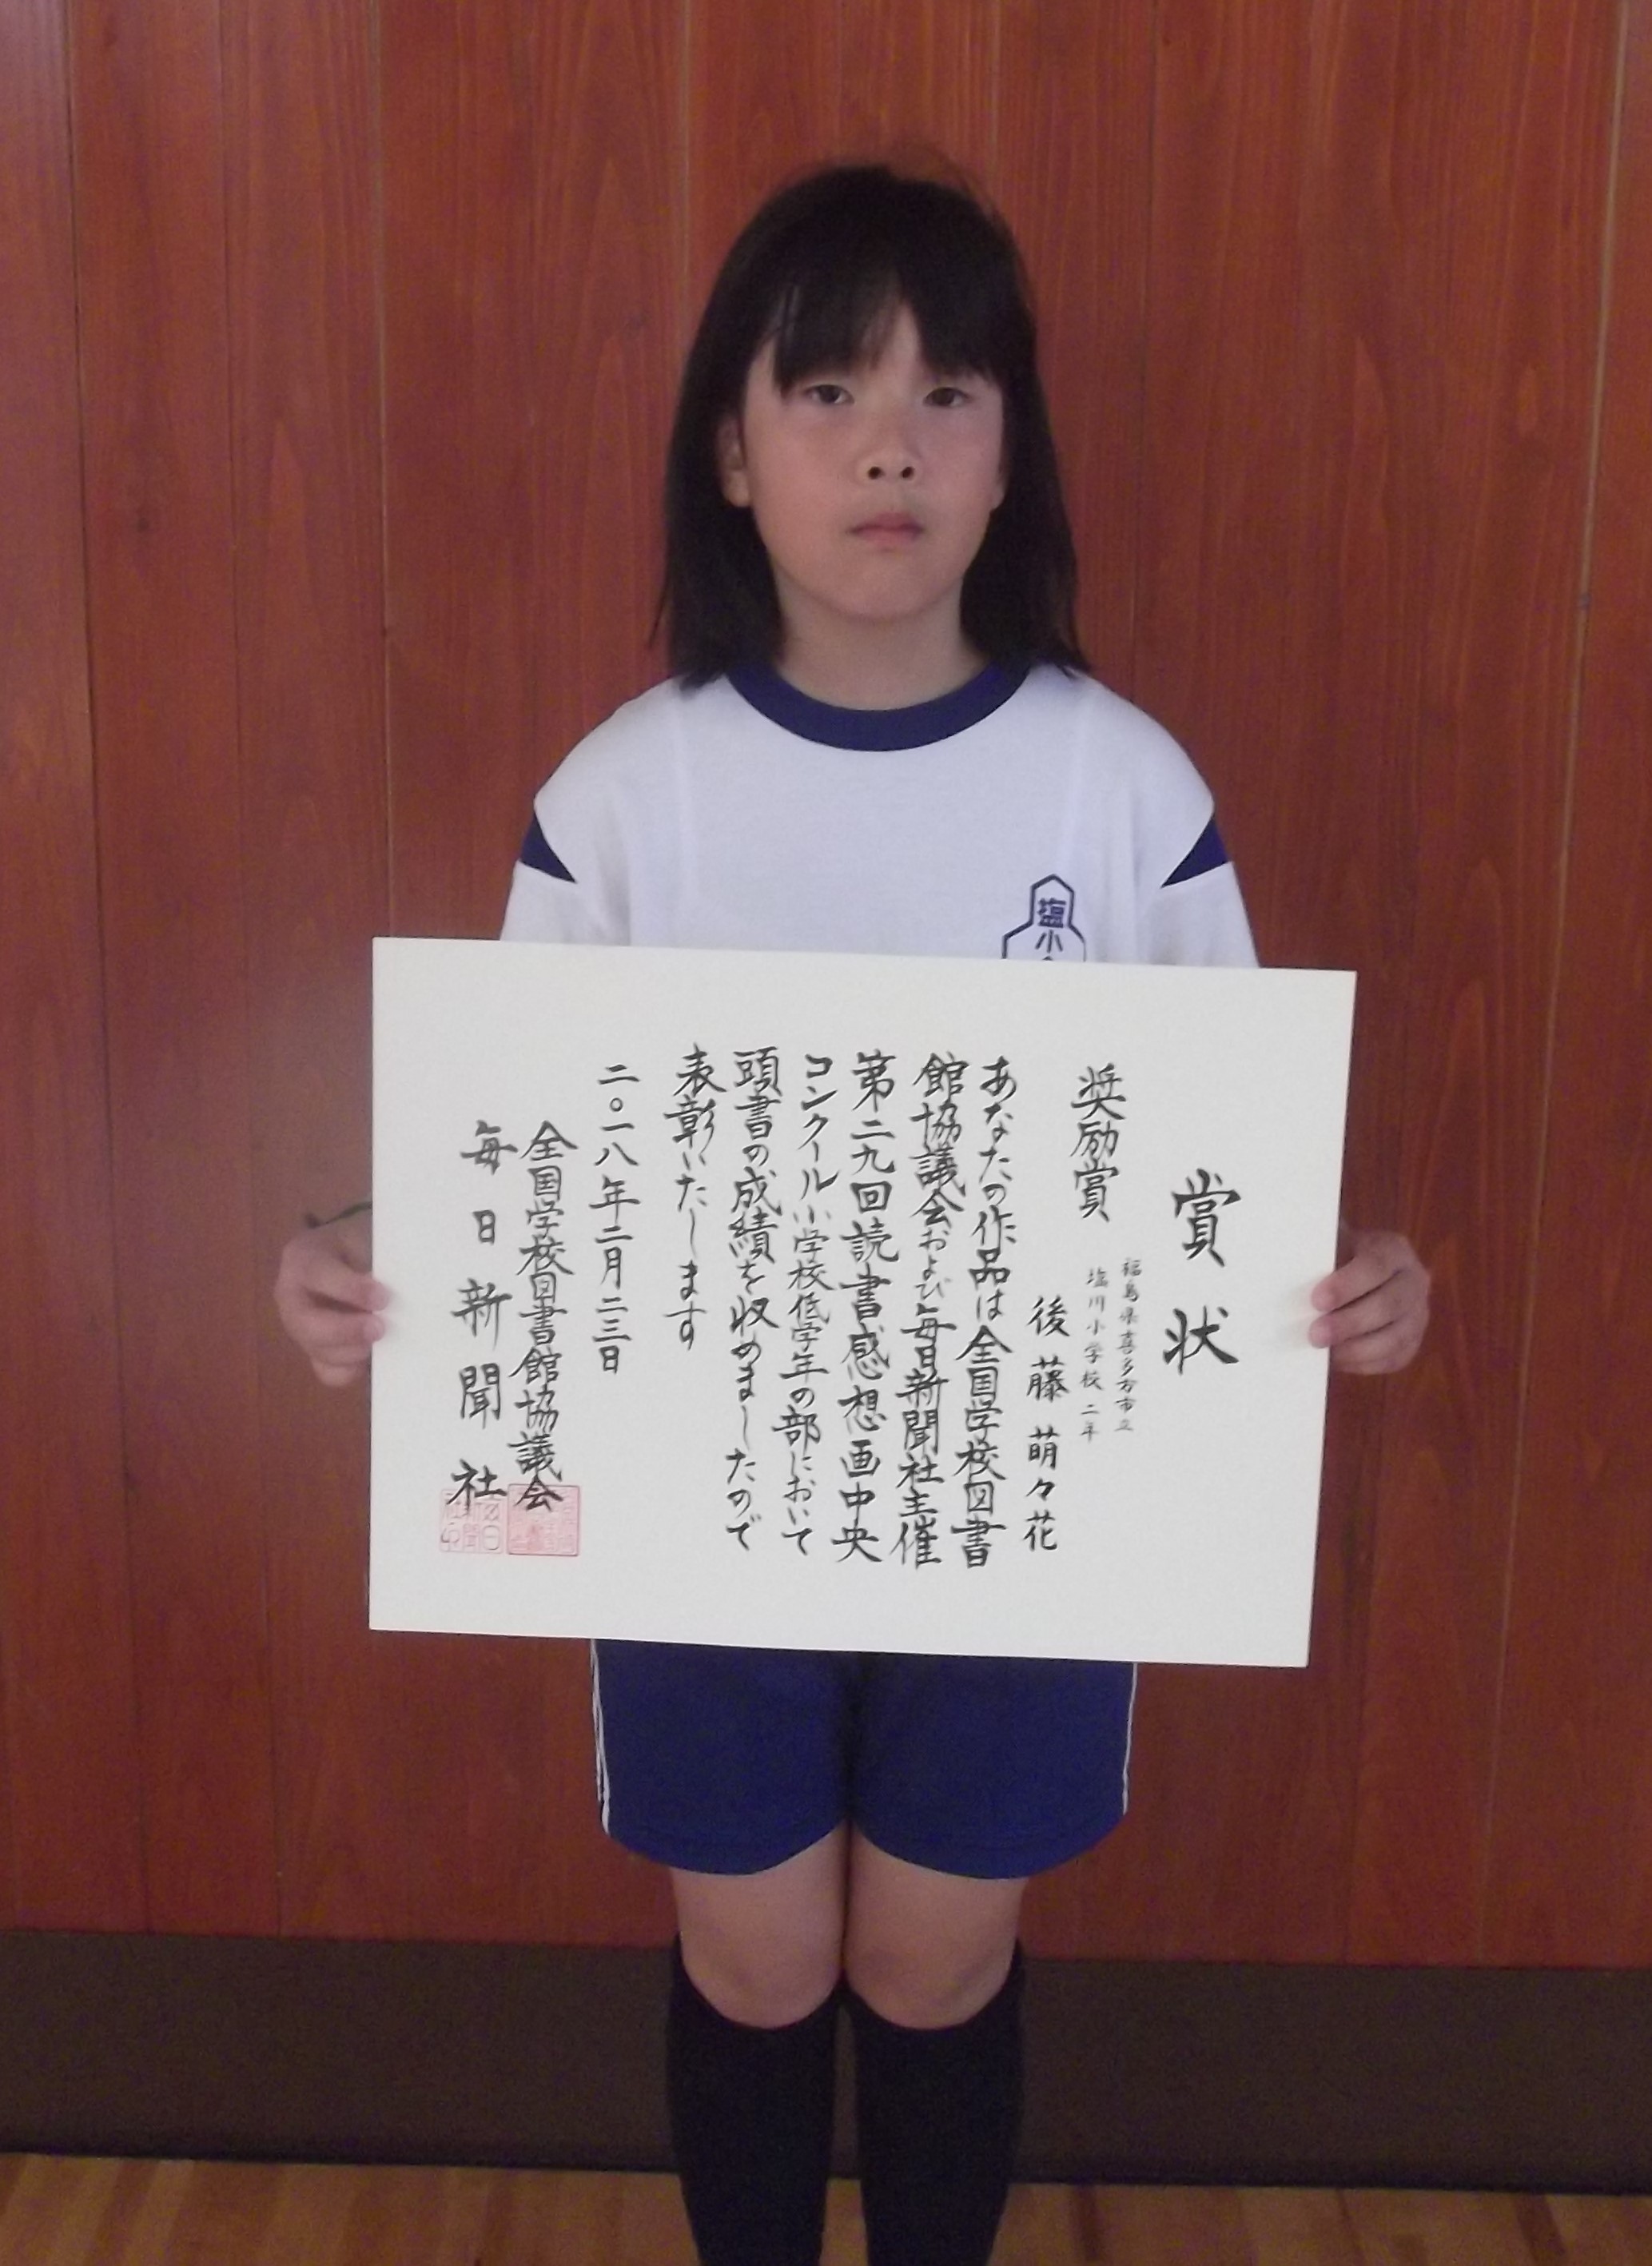 塩小
賞状
福島県喜多方市立
塩川小学校 二年
奨励賞
後藤 萌々花
あなたの作品は全国学校図書
館協議会および毎日新聞社主催
第二九回読書感想画中央
コンクール小学校低学年の部において
頭書の成績を収めましたので
表彰いたします
二〇一八年二月二三日
全国学校図書館協議会
毎日新聞社